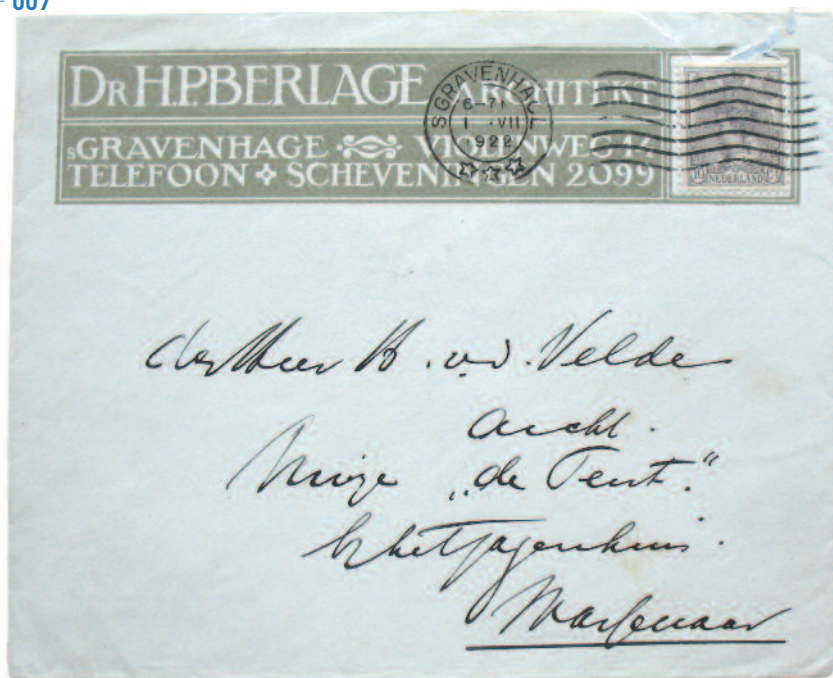 007
DR H.P.BERLAGE ARCHITEKT
sGRAVENHAGE VIOLENWEG 14
TELEFOON SCHEVENINGEN 2099
SGRAVENHAGE
6-7
1 .VII
1922
10 Ct
NEDERLAND
den Heer H. v.d. Velde
archt.
huize „de Tent."
b/h het Jagershuis.
Wassenaar